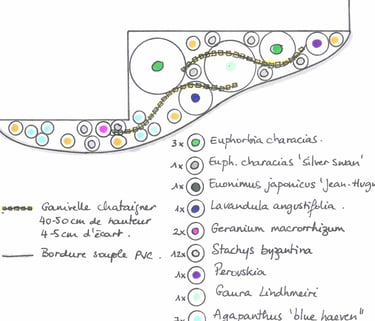 3x Euphorbia characias.
1x Euph. characias 'Silver Swan'
1x Euonimus japonicus 'Jean-Hugu
1x Lavandula angustifolia.
2x Geranium macrorrhizum
12x Stachys byzantina
1x Perovskia
1x Gaura Lindhmeiri
Agapanthus 'blue haeven"
Ganivelle chataigner
40-50 cm de hauteur
4-5 cm d'écart.
Bordure souple PVC.